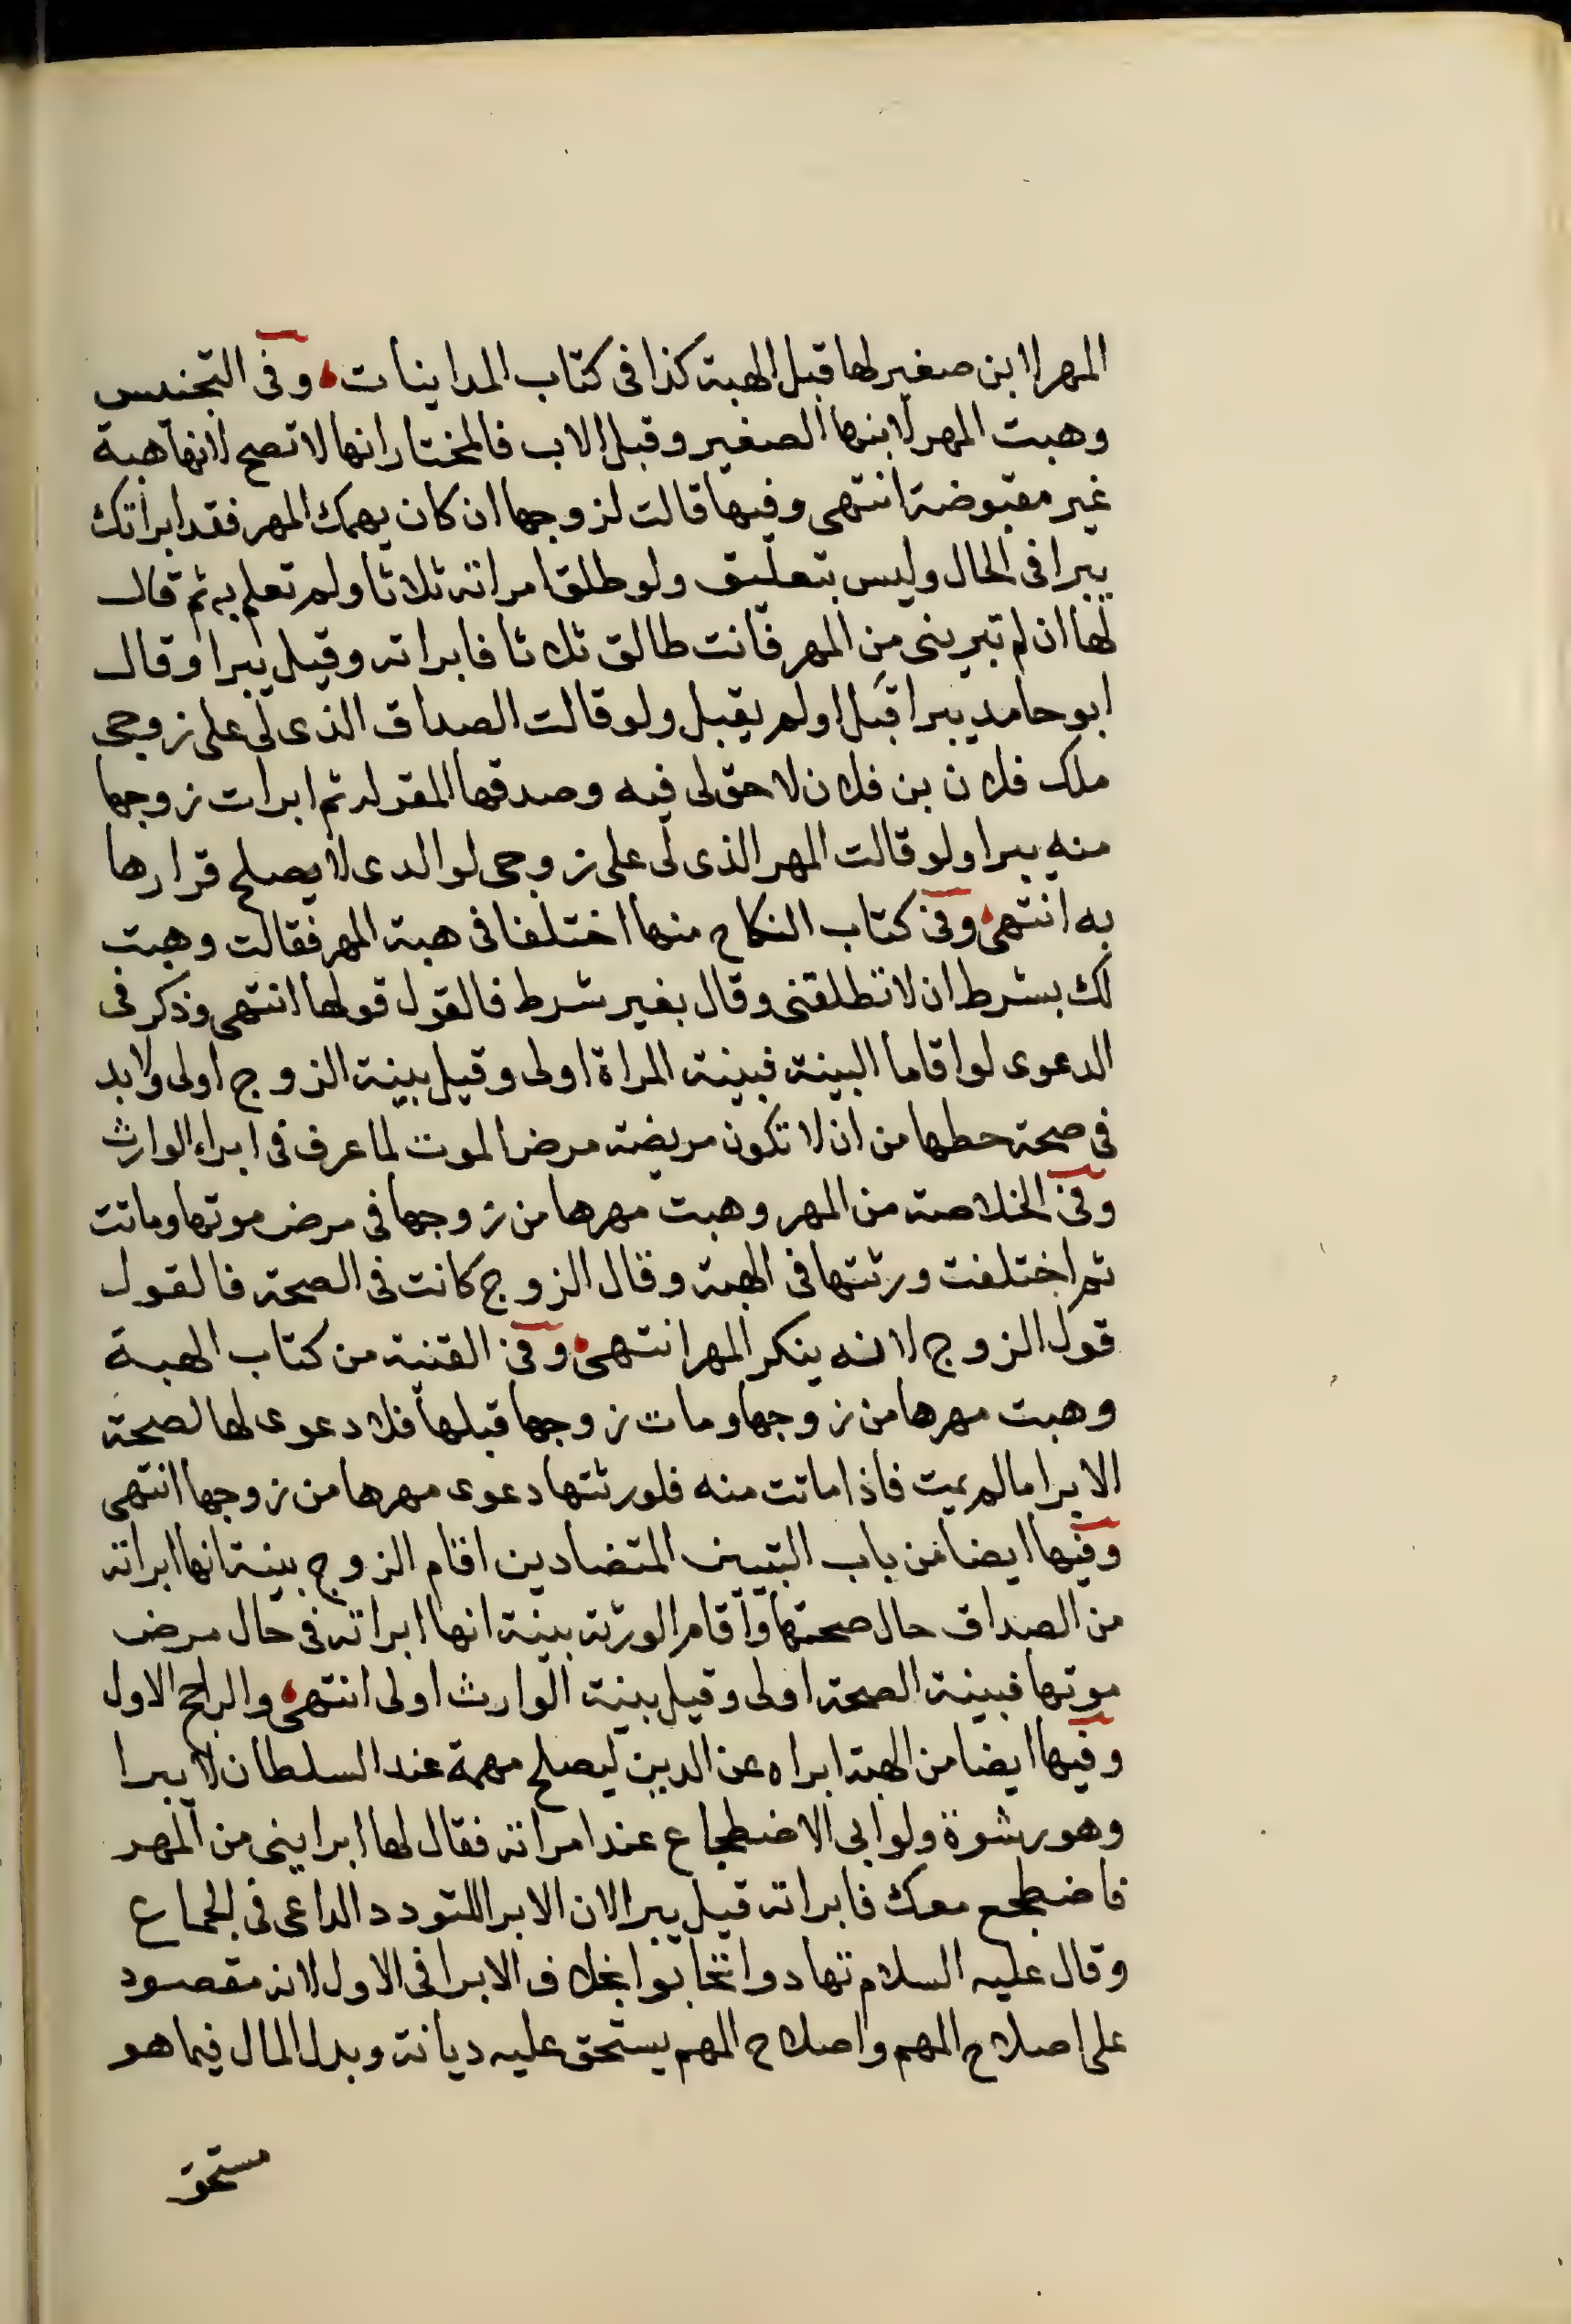 المهر لابن صغير لها قبل الهبة كذا فى كتاب المداينات وفى التجنيس
وهبت المهر لابنها الصغير وقبل الاب فالمختار انها لا تصح لانها هبة
غير مقبوضة انتهى وفيها قالت لزوجها ان كان يهمك المهر فقد ابراتك
يبرا فى الحال وليس بتعليق ولو طلق امراته ثلاثا ولم تعلم به ثم قال
لها ان لم تبرينى من المهر فانت طالق ثلاثا فابراته وقيل يبرا وقال
ابو حامد يبرا قبل او لم يقبل ولو قالت الصداق الذى لى على زوجى
ملك فلان بن فلان لا حق لى فيه وصدقها المقر له ثم ابرات زوجها
منه يبرا ولو قالت المهر الذى لى على زوجى لوالدى لا يصلح قرارها
به انتهى وفى كتاب النكاح منها اختلفا فى هبة المهر فقالت وهبت
لك بشرط ان لا تطلقنى وقال بغير شرط فالقول قولها انتهى وذكر فى
الدعوى لو اقاما البينة فبينة المراة اولى وقيل بينة الزوج اولى ولا بد
فى صحة حطها من ان لا تكون مريضة مرض الموت لما عرف فى ابراء الوارث
وفى الخلاصة من المهر وهبت مهرها من زوجها فى مرض موتها وماتت
ثم اختلفت ورثتها فى الهبة وقال الزوج كانت فى الصحة فالقول
قول الزوج لانه ينكر المهر انتهى وفى القنية من كتاب الهبة
وهبت مهرها من زوجها ومات زوجها قبلها فلا دعوى لها لصحة
الابرا ما لم يمت فاذا ماتت منه فلورثتها دعوى مهرها من زوجها انتهى
وفيها ايضا من باب البينتين المتضادين اقام الزوج بينة انها ابراته
من الصداق حال صحتها واقام الورثة بينة انها ابراته فى حال مرض
موتها فبينة الصحة اولى وقيل بينة الوارث اولى انتهى والراجح الاول
وفيها ايضا من الهبة ابراه عن الدين ليصلح مهمه عند السلطان لا يبرا
وهو رشوة ولو ابى الاضطجاع عند امراته فقال لها ابراينى من المهر
فاضطجع معك فابراته قيل يبرا لان الابرا للتودد الداعى فى الجماع
وقال عليه السلام تهادوا تحابوا بخلاف الابرا فى الاول لانه مقصود
على اصلاح المهم واصلاح المهم يستحق عليه ديانة وبدل المال فيما هو
مستحق